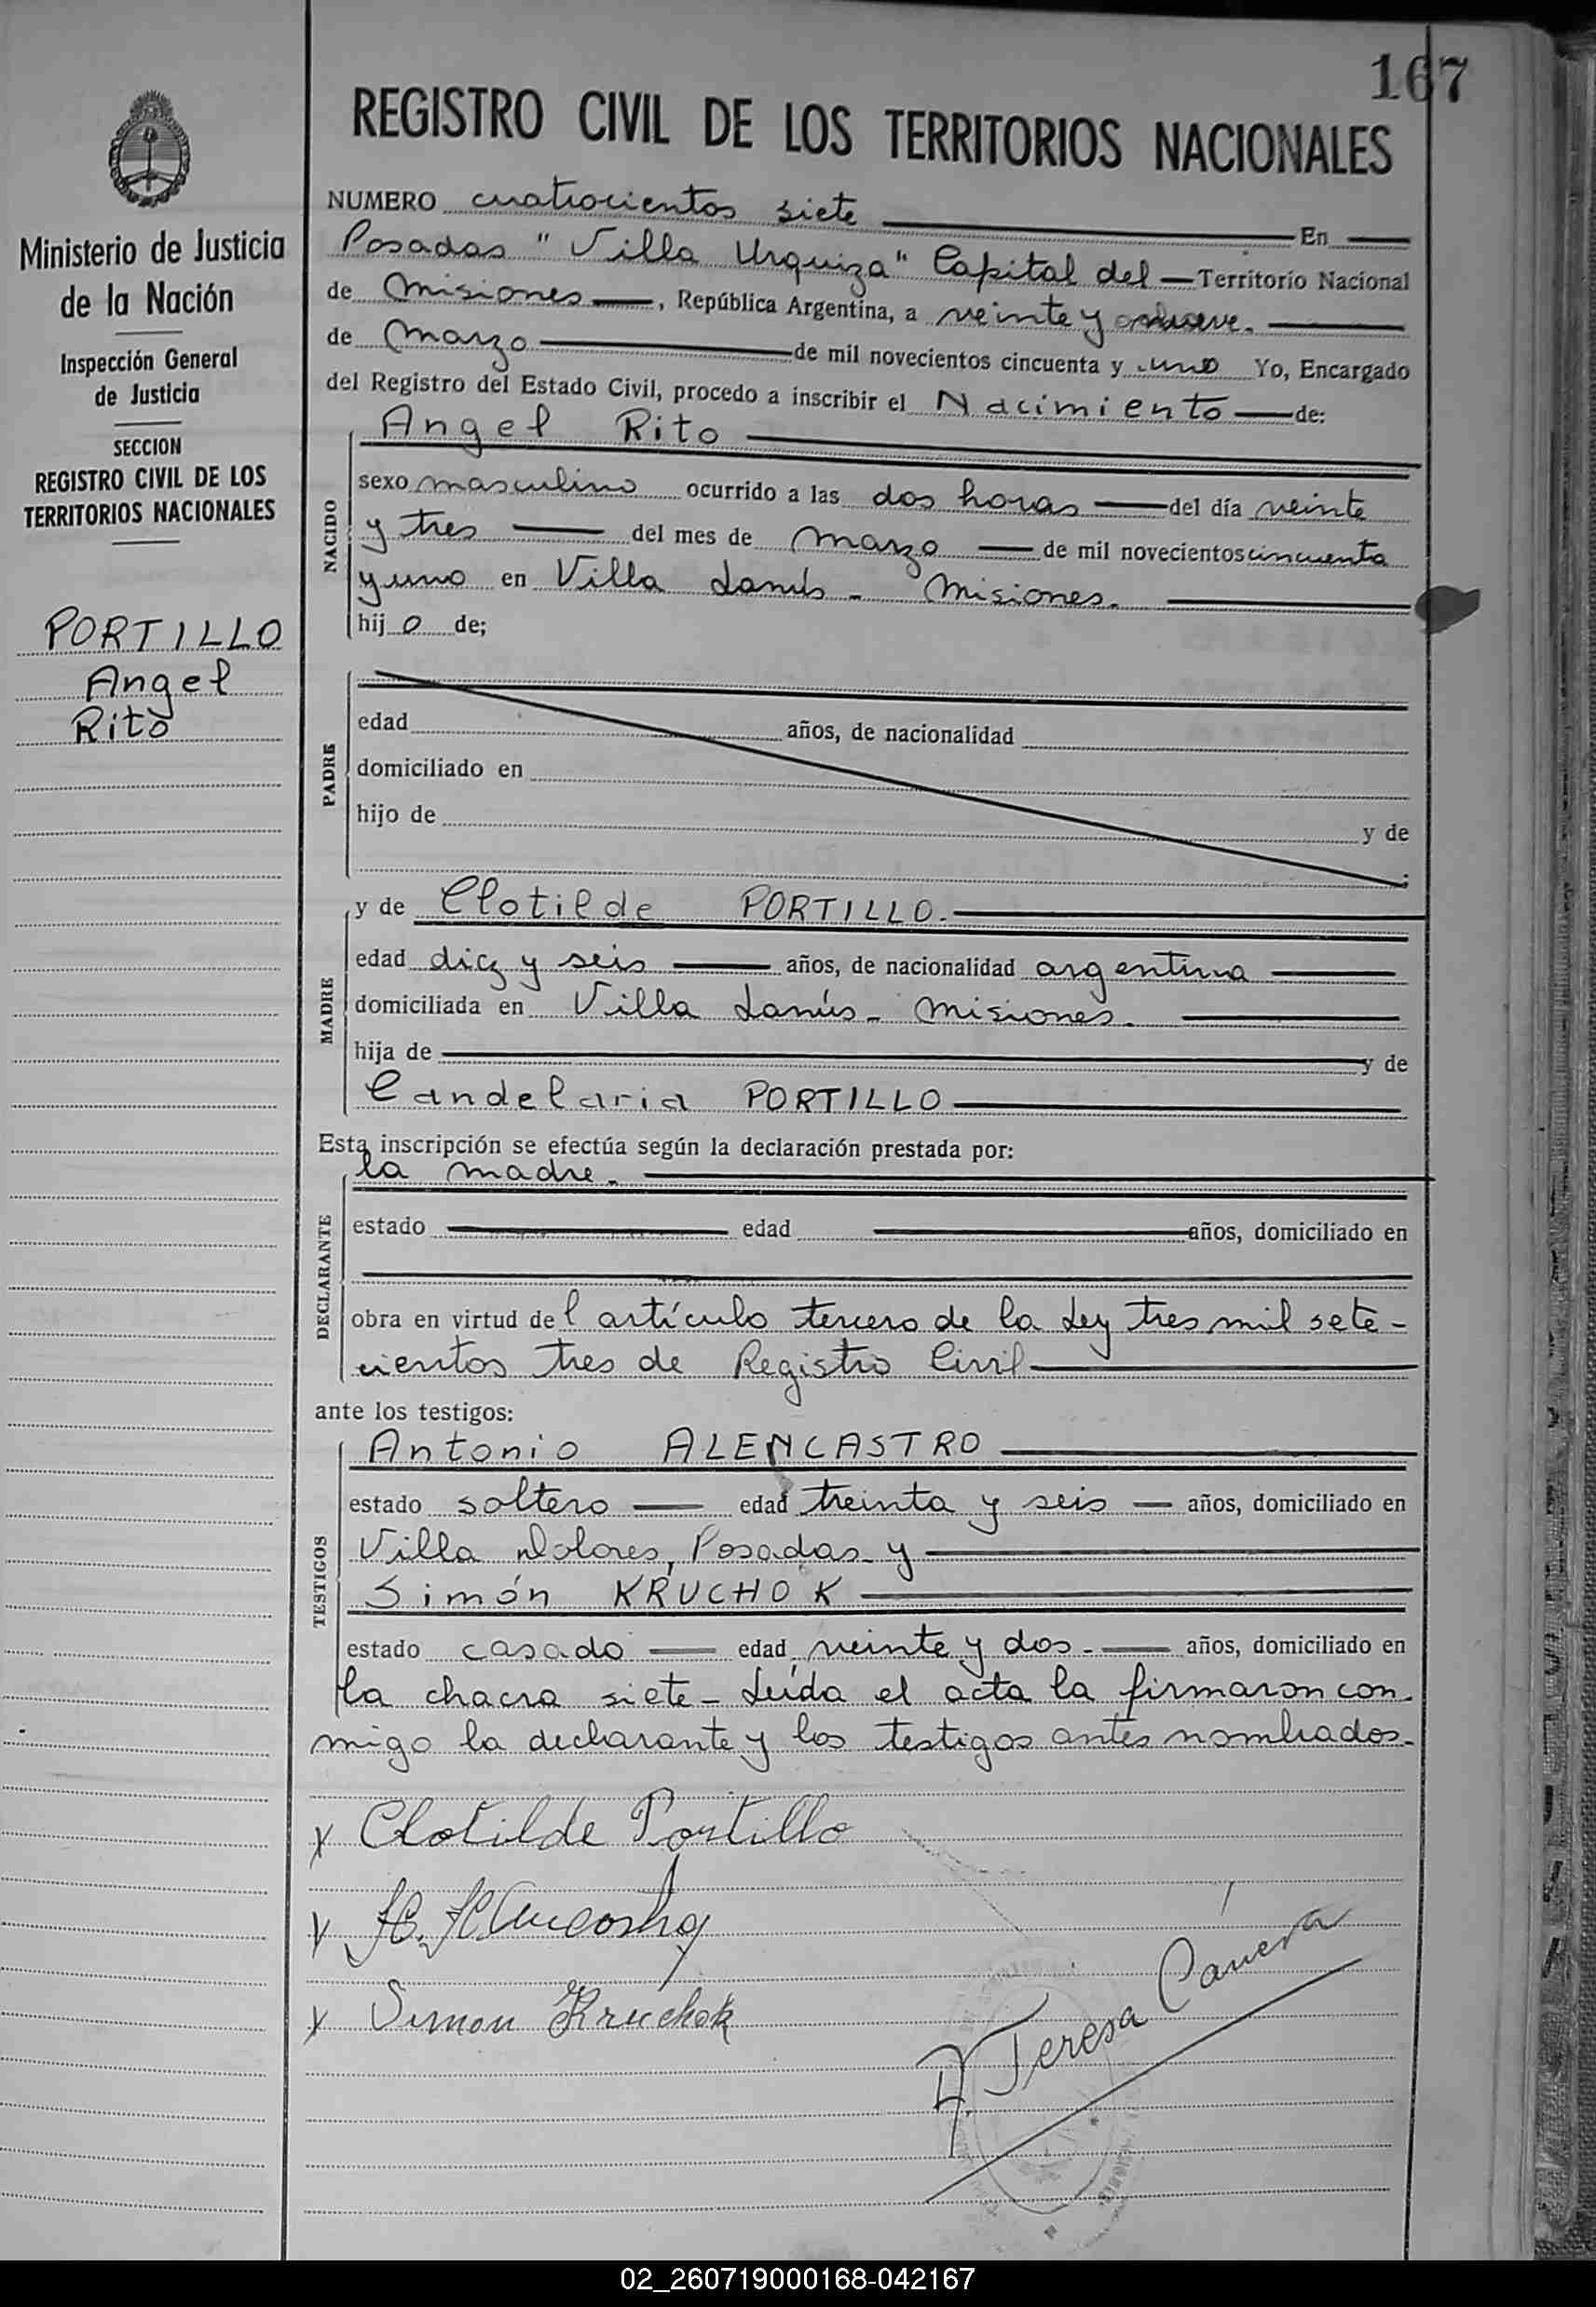 167
REGISTRO CIVIL DE LOS TERRITORIOS NACIONALES
Ministerio de Justicia
de la Nación
Inspección General
de Justicia
SECCION
REGISTRO CIVIL DE LOS
TERRITORIOS NACIONALES
PORTILLO
Angel
Rito
NUMERO cuatrocientos siete En
Posadas "Villa Urquiza" Capital del Territorio Nacional
de Misiones, República Argentina, a veinte y nueve.
de Marzo de mil novecientos cincuenta y uno Yo, Encargado
del Registro del Estado Civil, procedo a inscribir el Nacimiento de:
NACIDO
Angel Rito
sexo masculino ocurrido a las dos horas del día veinte
y tres del mes de Marzo de mil novecientos cincuenta
y uno en Villa Lanús - Misiones.
hijo de;
PADRE
edad años, de nacionalidad
domiciliado en
hijo de y de
MADRE
y de Clotilde PORTILLO.
edad diez y seis años, de nacionalidad argentina
domiciliada en Villa Lanús - Misiones.
hija de y de
Candelaria PORTILLO
Esta inscripción se efectúa según la declaración prestada por:
DECLARANTE
la madre.
estado edad años, domiciliado en
obra en virtud del artículo tercero de la Ley tres mil sete-
cientos tres de Registro Civil
ante los testigos:
TESTIGOS
Antonio ALENCASTRO
estado soltero edad treinta y seis años, domiciliado en
Villa Dolores, Posadas y
Simón KRUCHOK
estado casado edad veinte y dos. años, domiciliado en
la chacra siete - Leída el acta la firmaron con
migo la declarante y los testigos antes nombrados.
x Clotilde Portillo
x Simon Kruchok
Teresa
02_260719000168-042167